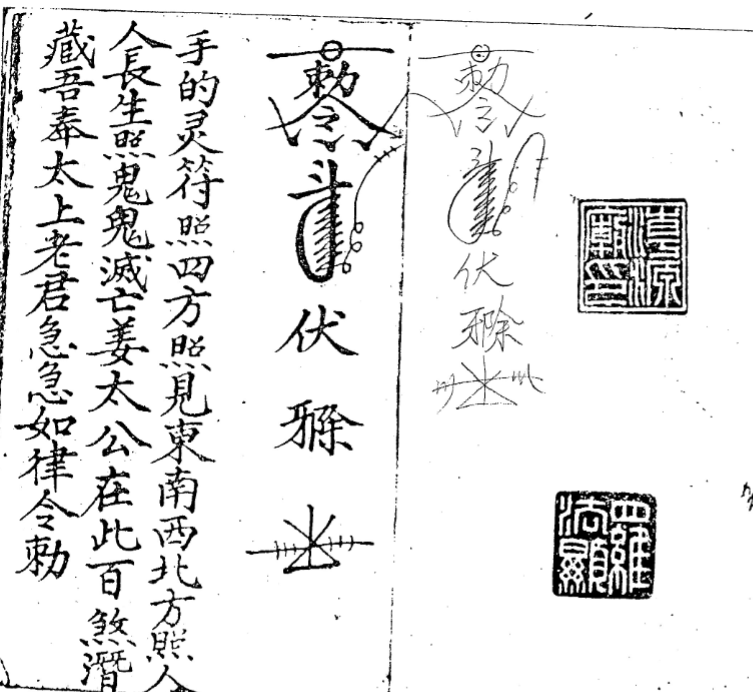 羅法顯
勅令
斗
伏
勅令
斗
伏
手的灵符照四方照見東南西北方照人
人長生照鬼鬼滅亡姜太公在此百煞潛
藏吾奉太上老君急急如律令勅